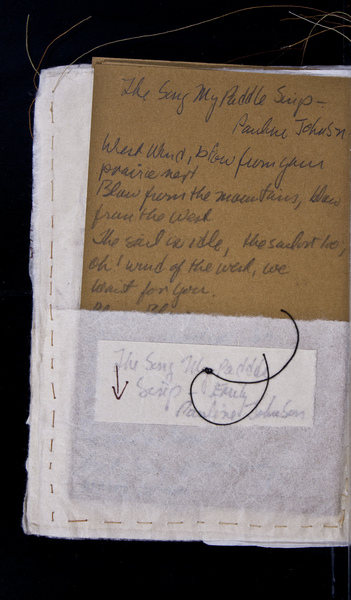 The Song My Paddle Sings –
Pauline Johnson
West Wind, blow from your
prairie nest
Blow from the mountains, blow
from the west
The sail is idle, the sailor too,
oh! wind of the west, we
wait for you.
The Song My Paddle
Sings – Emily
Pauline Johnson